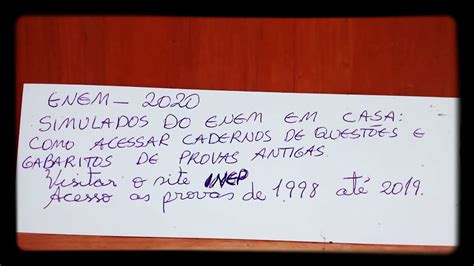 ENEM - 2020
SIMULADOS DO ENEM EM CASA:
COMO ACESSAR CADERNOS DE QUESTÕES E
GABARITOS DE PROVAS ANTIGAS.
Visitar o site INEP
Acesso as provas de 1998 até 2019.